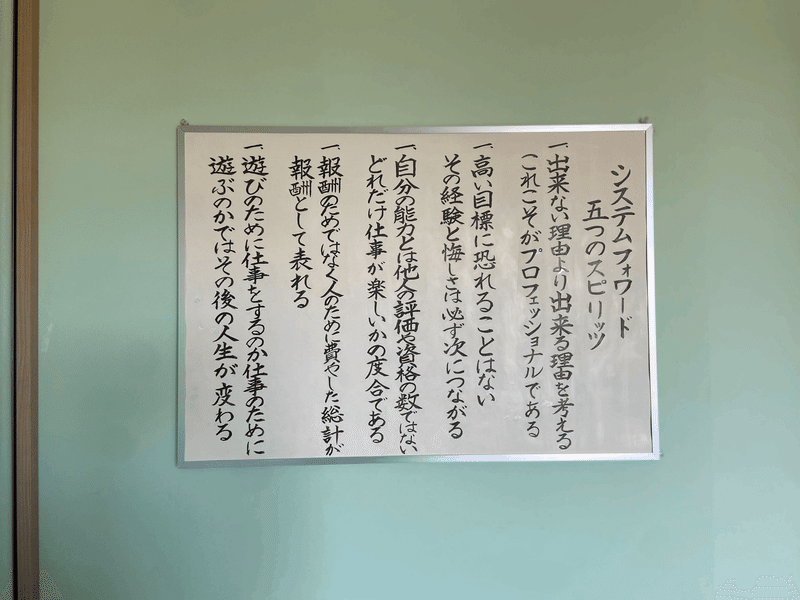 システムフォワード
五つのスピリッツ
一、出来ない理由より出来る理由を考える
これこそがプロフェッショナルである
一、高い目標に恐れることはない
その経験と悔しさは必ず次につながる
一、自分の能力とは他人の評価や資格の数ではない
どれだけ仕事が楽しいかの度合である
一、報酬のためではなく人のために費やした総計が
報酬として表れる
一、遊びのために仕事をするのか仕事のために
遊ぶのかではその後の人生が変わる